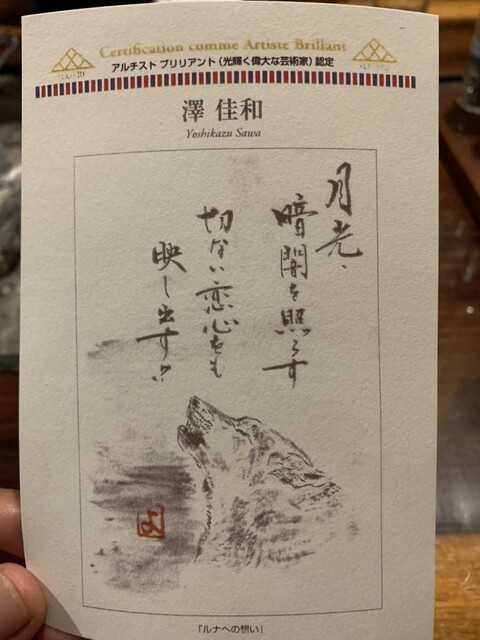 Certification comme Artiste Brillant
アルチスト ブリリアント（光輝く偉大な芸術家）認定
澤 佳和
Yoshikazu Sawa
月光、
暗闇を照らす
切ない恋心をも
映し出す!!
「ルナへの想い」